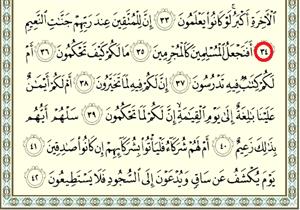 ٱلْأَخِرَةِ أَكْبَرُ لَوْ كَانُوا۟ يَعْلَمُونَ ٣٣ إِنَّ لِلْمُتَّقِينَ عِندَ رَبِّهِمْ جَنَّٰتِ ٱلنَّعِيمِ
٣٤ أَفَنَجْعَلُ ٱلْمُسْلِمِينَ كَٱلْمُجْرِمِينَ ٣٥ مَا لَكُمْ كَيْفَ تَحْكُمُونَ ٣٦ أَمْ
لَكُمْ كِتَٰبٌ فِيهِ تَدْرُسُونَ ٣٧ إِنَّ لَكُمْ فِيهِ لَمَا تَخَيَّرُونَ ٣٨ أَمْ لَكُمْ أَيْمَٰنٌ
عَلَيْنَا بَٰلِغَةٌ إِلَىٰ يَوْمِ ٱلْقِيَٰمَةِ إِنَّ لَكُمْ لَمَا تَحْكُمُونَ ٣٩ سَلْهُمْ أَيُّهُم
بِذَٰلِكَ زَعِيمٌ ٤٠ أَمْ لَهُمْ شُرَكَآءُ فَلْيَأْتُوا۟ بِشُرَكَآئِهِمْ إِن كَانُوا۟ صَٰدِقِينَ ٤١
يَوْمَ يُكْشَفُ عَن سَاقٍ وَيُدْعَوْنَ إِلَى ٱلسُّجُودِ فَلَا يَسْتَطِيعُونَ ٤٢